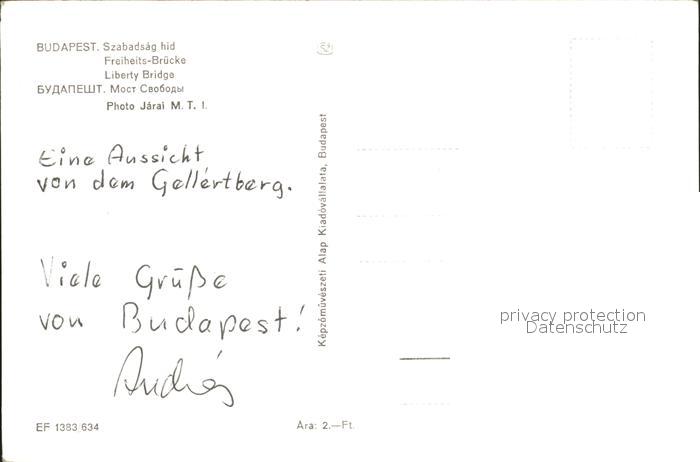 BUDAPEST. Szabadság hid
Freiheits-Brücke
Liberty Bridge
БУДАПЕШТ. Мост Свободы
Photo Járai M. T. I.
Eine Aussicht
von dem Gellértberg.
Viele Grüße
von Budapest!
András
EF 1383/634
Ára: 2.—Ft.
Képzőművészeti Alap Kiadóvállalata, Budapest
privacy protection
Datenschutz